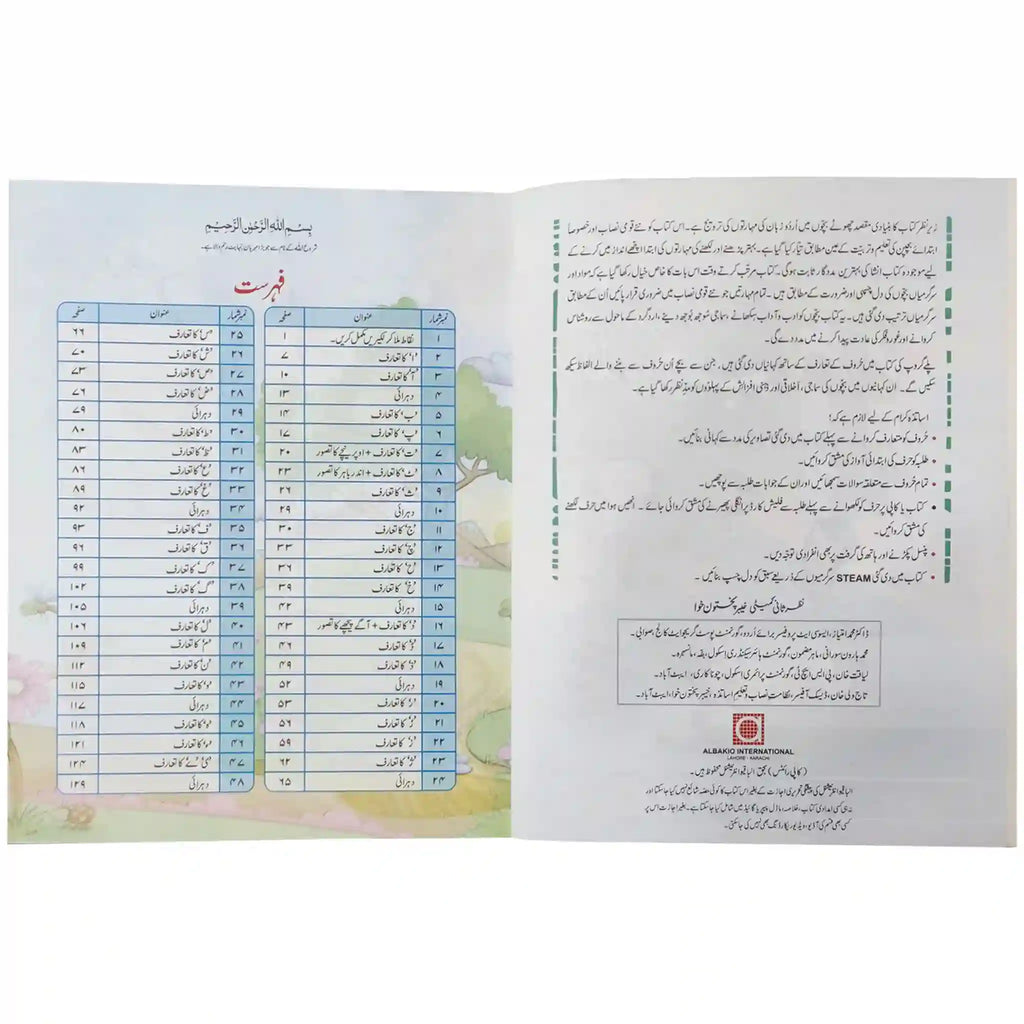 زیرِ نظر کتاب کا بنیادی مقصد چھوٹے بچوں میں اُردو زبان کی مہارتوں کی ترویج ہے۔ اس کتاب کو نئے قومی نصاب اور خصوصاً
ابتدائے بچپن کی تعلیم و تربیت کے عین مطابق تیار کیا گیا ہے۔ بہتر پڑھنے اور لکھنے کی مہارتوں کی ابتدا اچھے انداز میں کرنے کے
لیے موجودہ کتاب انشا کی بہترین مددگار ثابت ہوگی۔ کتاب مرتب کرتے وقت اس بات کا خاص خیال رکھا گیا ہے کہ مواد اور
سرگرمیاں بچوں کی دل چسپی اور ضرورت کے مطابق ہیں۔ تمام مہارتیں جو نئے قومی نصاب میں ضروری قرار پائیں اُن کے مطابق
سرگرمیاں ترتیب دی گئی ہیں۔ یہ کتاب بچوں کو ادب و آداب سکھانے، سماجی سوجھ بوجھ دینے، اردگرد کے ماحول سے روشناس
کروانے اور غوروفکر کی عادت پیدا کرنے میں مدد دے گی۔
پلے گروپ کی کتاب میں حروف کے تعارف کے ساتھ کہانیاں دی گئی ہیں۔ جن سے بچے اُن حروف سے بننے والے الفاظ سیکھ
سکیں گے۔ ان کہانیوں میں بچوں کی سماجی، اخلاقی اور ذہنی افزائش کے پہلوؤں کو مدِنظر رکھا گیا ہے۔
اساتذہ کرام کے لیے لازم ہے کہ:
• حُروف کو متعارف کروانے سے پہلے کتاب میں دی گئی تصاویر کی مدد سے کہانی بنائیں۔
• طلبہ کو حرف کی ابتدائی آواز کی مشق کروائیں۔
• تمام حُروف سے متعلقہ سوالات سمجھائیں اور ان کے جوابات طلبہ سے پوچھیں۔
• کتاب یا کاپی پر حرف کو لکھوانے سے پہلے طلبہ سے فلیش کارڈ پر انگلی پھیرنے کی مشق کروائی جائے۔ انھیں ہوا میں حرف لکھنے
کی مشق کروائیں۔
• پنسل پکڑنے اور ہاتھ کی گرفت پر بھی انفرادی توجہ دیں۔
• کتاب میں دی گئی STEAM سرگرمیوں کے ذریعے سبق کو دل چسپ بنائیں۔
نظرِ ثانی کمیٹی خیبر پختون خوا
ڈاکٹر محمد امتیاز، ایسوسی ایٹ پروفیسر برائے اُردو، گورنمنٹ پوسٹ گریجوایٹ کالج، صوابی۔
محمد ہارون سورانی، ماہرِ مضمون، گورنمنٹ ہائر سیکنڈری اسکول، بفہ، مانسہرہ۔
لیاقت خان، پی ایس ایچ ٹی، گورنمنٹ پرائمری اسکول، چونا کاری، ایبٹ آباد۔
تاج ولی خان، ڈیسک آفیسر، نظامت نصاب و تعلیم اساتذہ، خیبر پختون خوا، ایبٹ آباد۔
ALBAKIO INTERNATIONAL
LAHORE - KARACHI
(کاپی رائٹس) بحق الباقیو انٹرنیشنل محفوظ ہیں۔
الباقیو انٹرنیشنل کی پیشگی تحریری اجازت کے بغیر اس کتاب کا کوئی حصہ شائع نہیں کیا جا سکتا اور
نہ ہی کسی امدادی کتاب، خلاصہ، ماڈل پیپر یا گائیڈ میں شامل کیا جا سکتا ہے۔ بغیر اجازت اس پر
کسی بھی قسم کی آڈیو، ویڈیو ریکارڈنگ بھی نہیں کی جا سکتی۔
بِسْمِ اللهِ الرَّحْمٰنِ الرَّحِيْمِ
شروع اللہ کے نام سے جو بڑا مہربان نہایت رحم والا ہے۔
فہرست
نمبر شمار عنوان صفحہ
۱ نقاط ملا کر لکیریں مکمل کریں۔ ۱
۲ ’ا‘ کا تعارف ۷
۳ ’آ‘ کا تعارف ۱۰
۴ دہرائی ۱۳
۵ ’ب‘ کا تعارف ۱۴
۶ ’پ‘ کا تعارف ۱۷
۷ ’ت‘ کا تعارف + اوپر نیچے کا تصور ۲۰
۸ ’ٹ‘ کا تعارف + اندر باہر کا تصور ۲۳
۹ ’ث‘ کا تعارف ۲۶
۱۰ دہرائی ۲۹
۱۱ ’ج‘ کا تعارف ۳۰
۱۲ ’چ‘ کا تعارف ۳۳
۱۳ ’ح‘ کا تعارف ۳۶
۱۴ ’خ‘ کا تعارف ۳۹
۱۵ دہرائی ۴۲
۱۶ ’د‘ کا تعارف + آگے پیچھے کا تصور ۴۳
۱۷ ’ڈ‘ کا تعارف ۴۶
۱۸ ’ذ‘ کا تعارف ۴۹
۱۹ دہرائی ۵۲
۲۰ ’ر‘ کا تعارف ۵۳
۲۱ ’ڑ‘ کا تعارف ۵۶
۲۲ ’ز‘ کا تعارف ۵۹
۲۳ ’ژ‘ کا تعارف ۶۲
۲۴ دہرائی ۶۵
نمبر شمار عنوان صفحہ
۲۵ ’س‘ کا تعارف ۶۶
۲۶ ’ش‘ کا تعارف ۷۰
۲۷ ’ص‘ کا تعارف ۷۳
۲۸ ’ض‘ کا تعارف ۷۶
۲۹ دہرائی ۷۹
۳۰ ’ط‘ کا تعارف ۸۰
۳۱ ’ظ‘ کا تعارف ۸۳
۳۲ ’ع‘ کا تعارف ۸۶
۳۳ ’غ‘ کا تعارف ۸۹
۳۴ دہرائی ۹۲
۳۵ ’ف‘ کا تعارف ۹۳
۳۶ ’ق‘ کا تعارف ۹۶
۳۷ ’ک‘ کا تعارف ۹۹
۳۸ ’گ‘ کا تعارف ۱۰۲
۳۹ دہرائی ۱۰۵
۴۰ ’ل‘ کا تعارف ۱۰۶
۴۱ ’م‘ کا تعارف ۱۰۹
۴۲ ’ن‘ کا تعارف ۱۱۲
۴۳ ’و‘ کا تعارف ۱۱۵
۴۴ دہرائی ۱۱۷
۴۵ ’ہ‘ کا تعارف ۱۱۸
۴۶ ’ء‘ کا تعارف ۱۲۱
۴۷ ’ی‘ ’ے‘ کا تعارف ۱۲۴
۴۸ دہرائی ۱۲۹